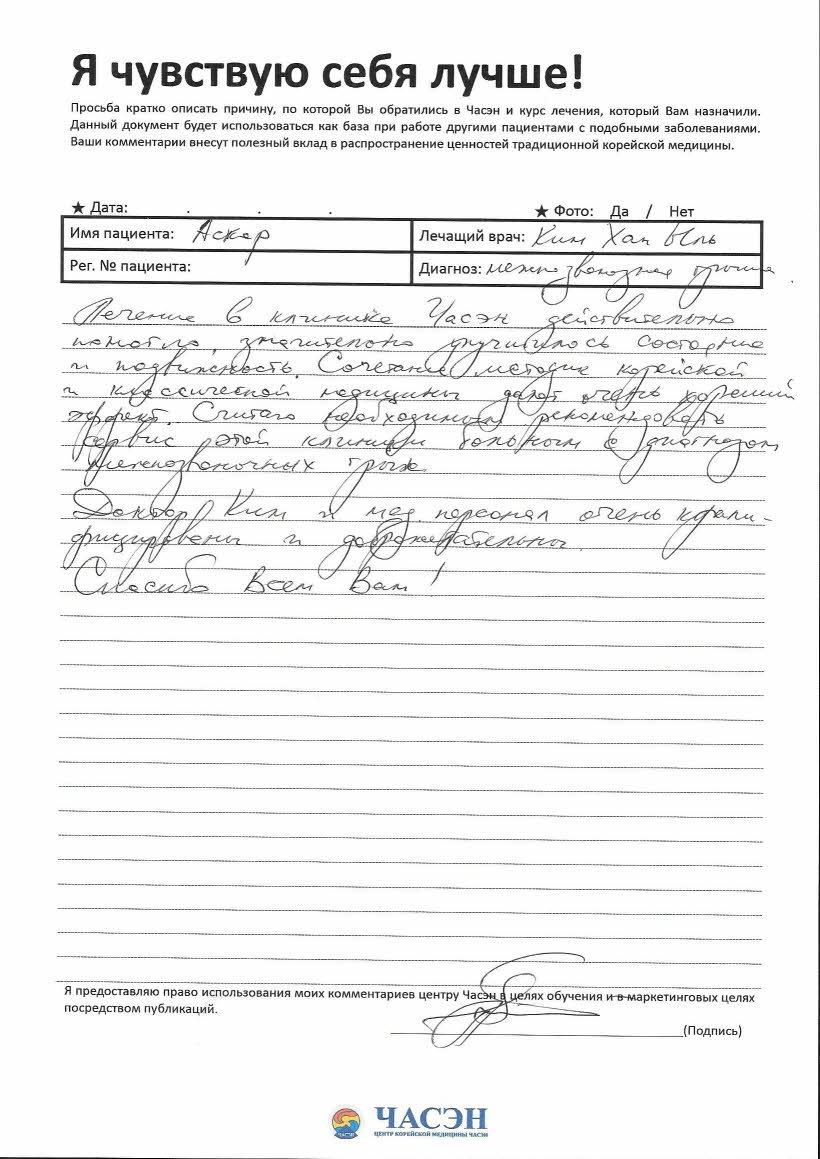 Я чувствую себя лучше!
Просьба кратко описать причину, по которой Вы обратились в Часэн и курс лечения, который Вам назначили.
Данный документ будет использоваться как база при работе другими пациентами с подобными заболеваниями.
Ваши комментарии внесут полезный вклад в распространение ценностей традиционной корейской медицины.
★ Дата: . . . ★ Фото: Да / Нет
Имя пациента: Аскар Лечащий врач: Ким Хан Ыль
Рег. № пациента: Диагноз: межпозвоночная грыжа.
Лечение в клинике Часэн действительно
помогло, значительно улучшилось состояние
и подвижность. Сочетание методик корейской
и классической медицины дают очень хороший
эффект. Считаю необходимым рекомендовать
сервис этой клиники больным с диагнозом
межпозвоночных грыж.
Доктор Ким и мед. персонал очень квали-
фицированы и доброжелательны.
Спасибо всем Вам!
Я предоставляю право использования моих комментариев центру Часэн в целях обучения и в маркетинговых целях
посредством публикаций.
(Подпись)
ЧАСЭН
ЧАСЭН
ЦЕНТР КОРЕЙСКОЙ МЕДИЦИНЫ ЧАСЭН